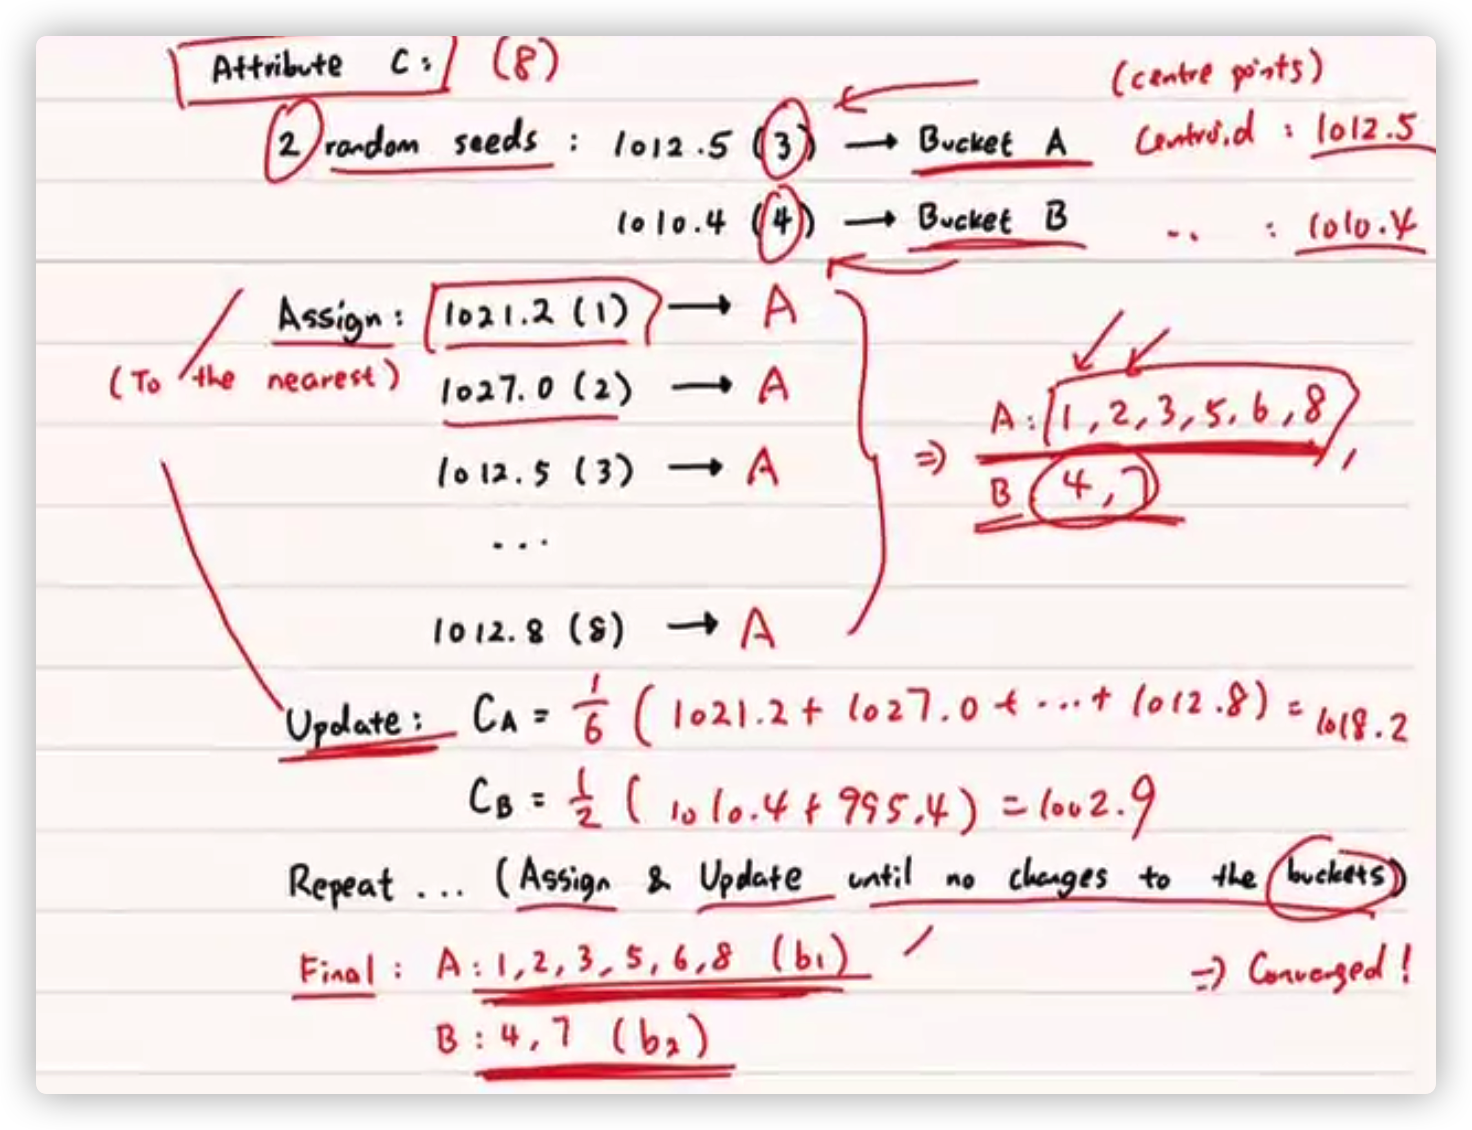 Attribute C: (8)
(centre points)
2 random seeds : 1012.5 (3) → Bucket A Centroid : 1012.5
1010.4 (4) → Bucket B .. : 1010.4
Assign: 1021.2 (1) → A
(To the nearest) 1027.0 (2) → A
A: 1, 2, 3, 5, 6, 8
1012.5 (3) → A ⇒
B 4, 7
...
1012.8 (8) → A
Update: CA = 1/6 (1021.2 + 1027.0 + ... + 1012.8) = 1018.2
CB = 1/2 (1010.4 + 995.4) = 1002.9
Repeat ... (Assign & Update until no changes to the buckets)
Final: A: 1, 2, 3, 5, 6, 8 (b1) ⇒ Converged!
B: 4, 7 (b2)